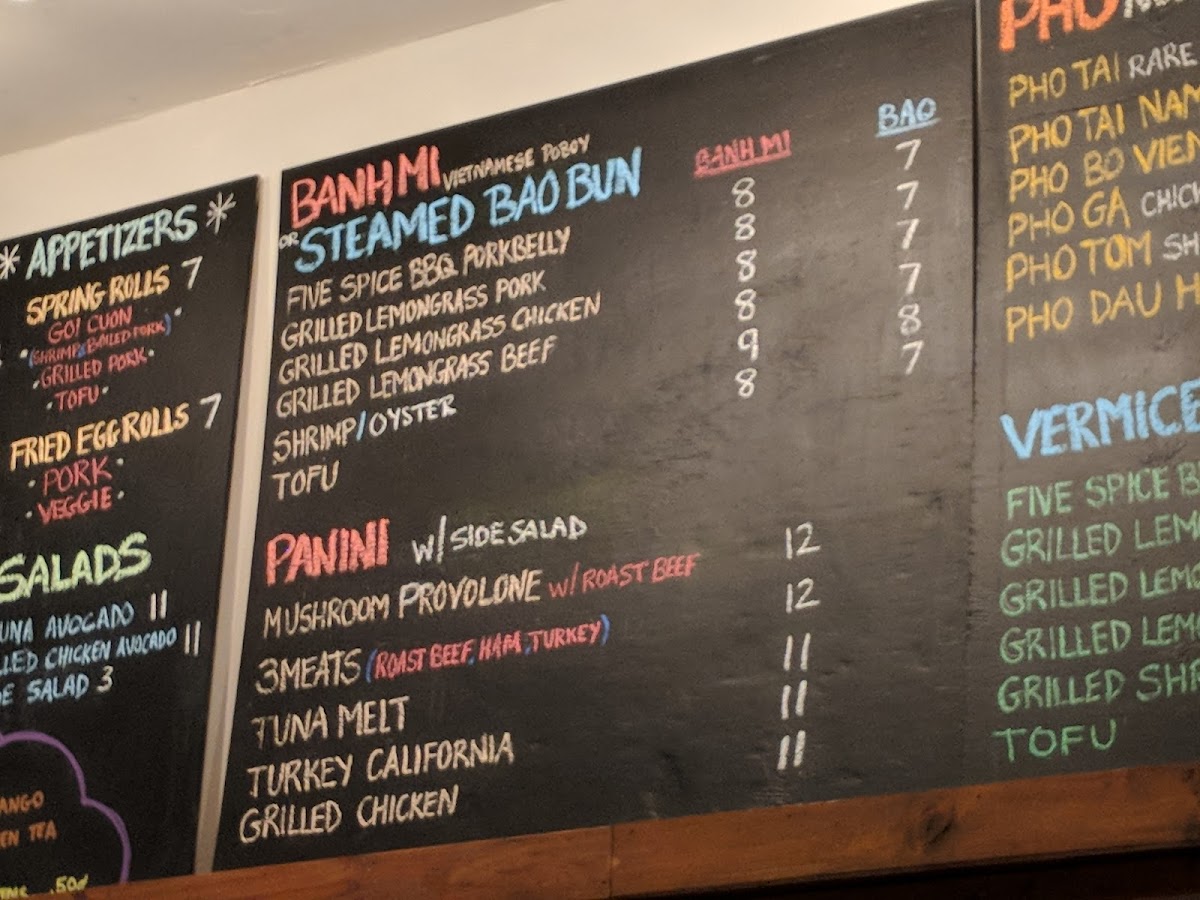 * APPETIZERS *
SPRING ROLLS 7
GOI CUON
(SHRIMP & BOILED PORK)
· GRILLED PORK ·
· TOFU ·
FRIED EGG ROLLS 7
· PORK ·
· VEGGIE ·
SALADS
AVOCADO 11
CHICKEN AVOCADO 11
SALAD 3
TEA
.50¢
BANH MI VIETNAMESE POBOY
OR STEAMED BAO BUN
BANH MI BAO
FIVE SPICE BBQ PORKBELLY 8 7
GRILLED LEMONGRASS PORK 8 7
GRILLED LEMONGRASS CHICKEN 8 7
GRILLED LEMONGRASS BEEF 8 7
SHRIMP/OYSTER 9 8
TOFU 8 7
PANINI W/ SIDE SALAD
MUSHROOM PROVOLONE W/ ROAST BEEF 12
3 MEATS (ROAST BEEF, HAM, TURKEY) 12
TUNA MELT 11
TURKEY CALIFORNIA 11
GRILLED CHICKEN 11
PHO
PHO TAI RARE
PHO TAI NAM
PHO BO VIEN
PHO GA CHIC
PHO TOM SH
PHO DAU H
VERMICE
FIVE SPICE B
GRILLED LEM
GRILLED LEMO
GRILLED LEM
GRILLED SHR
TOFU